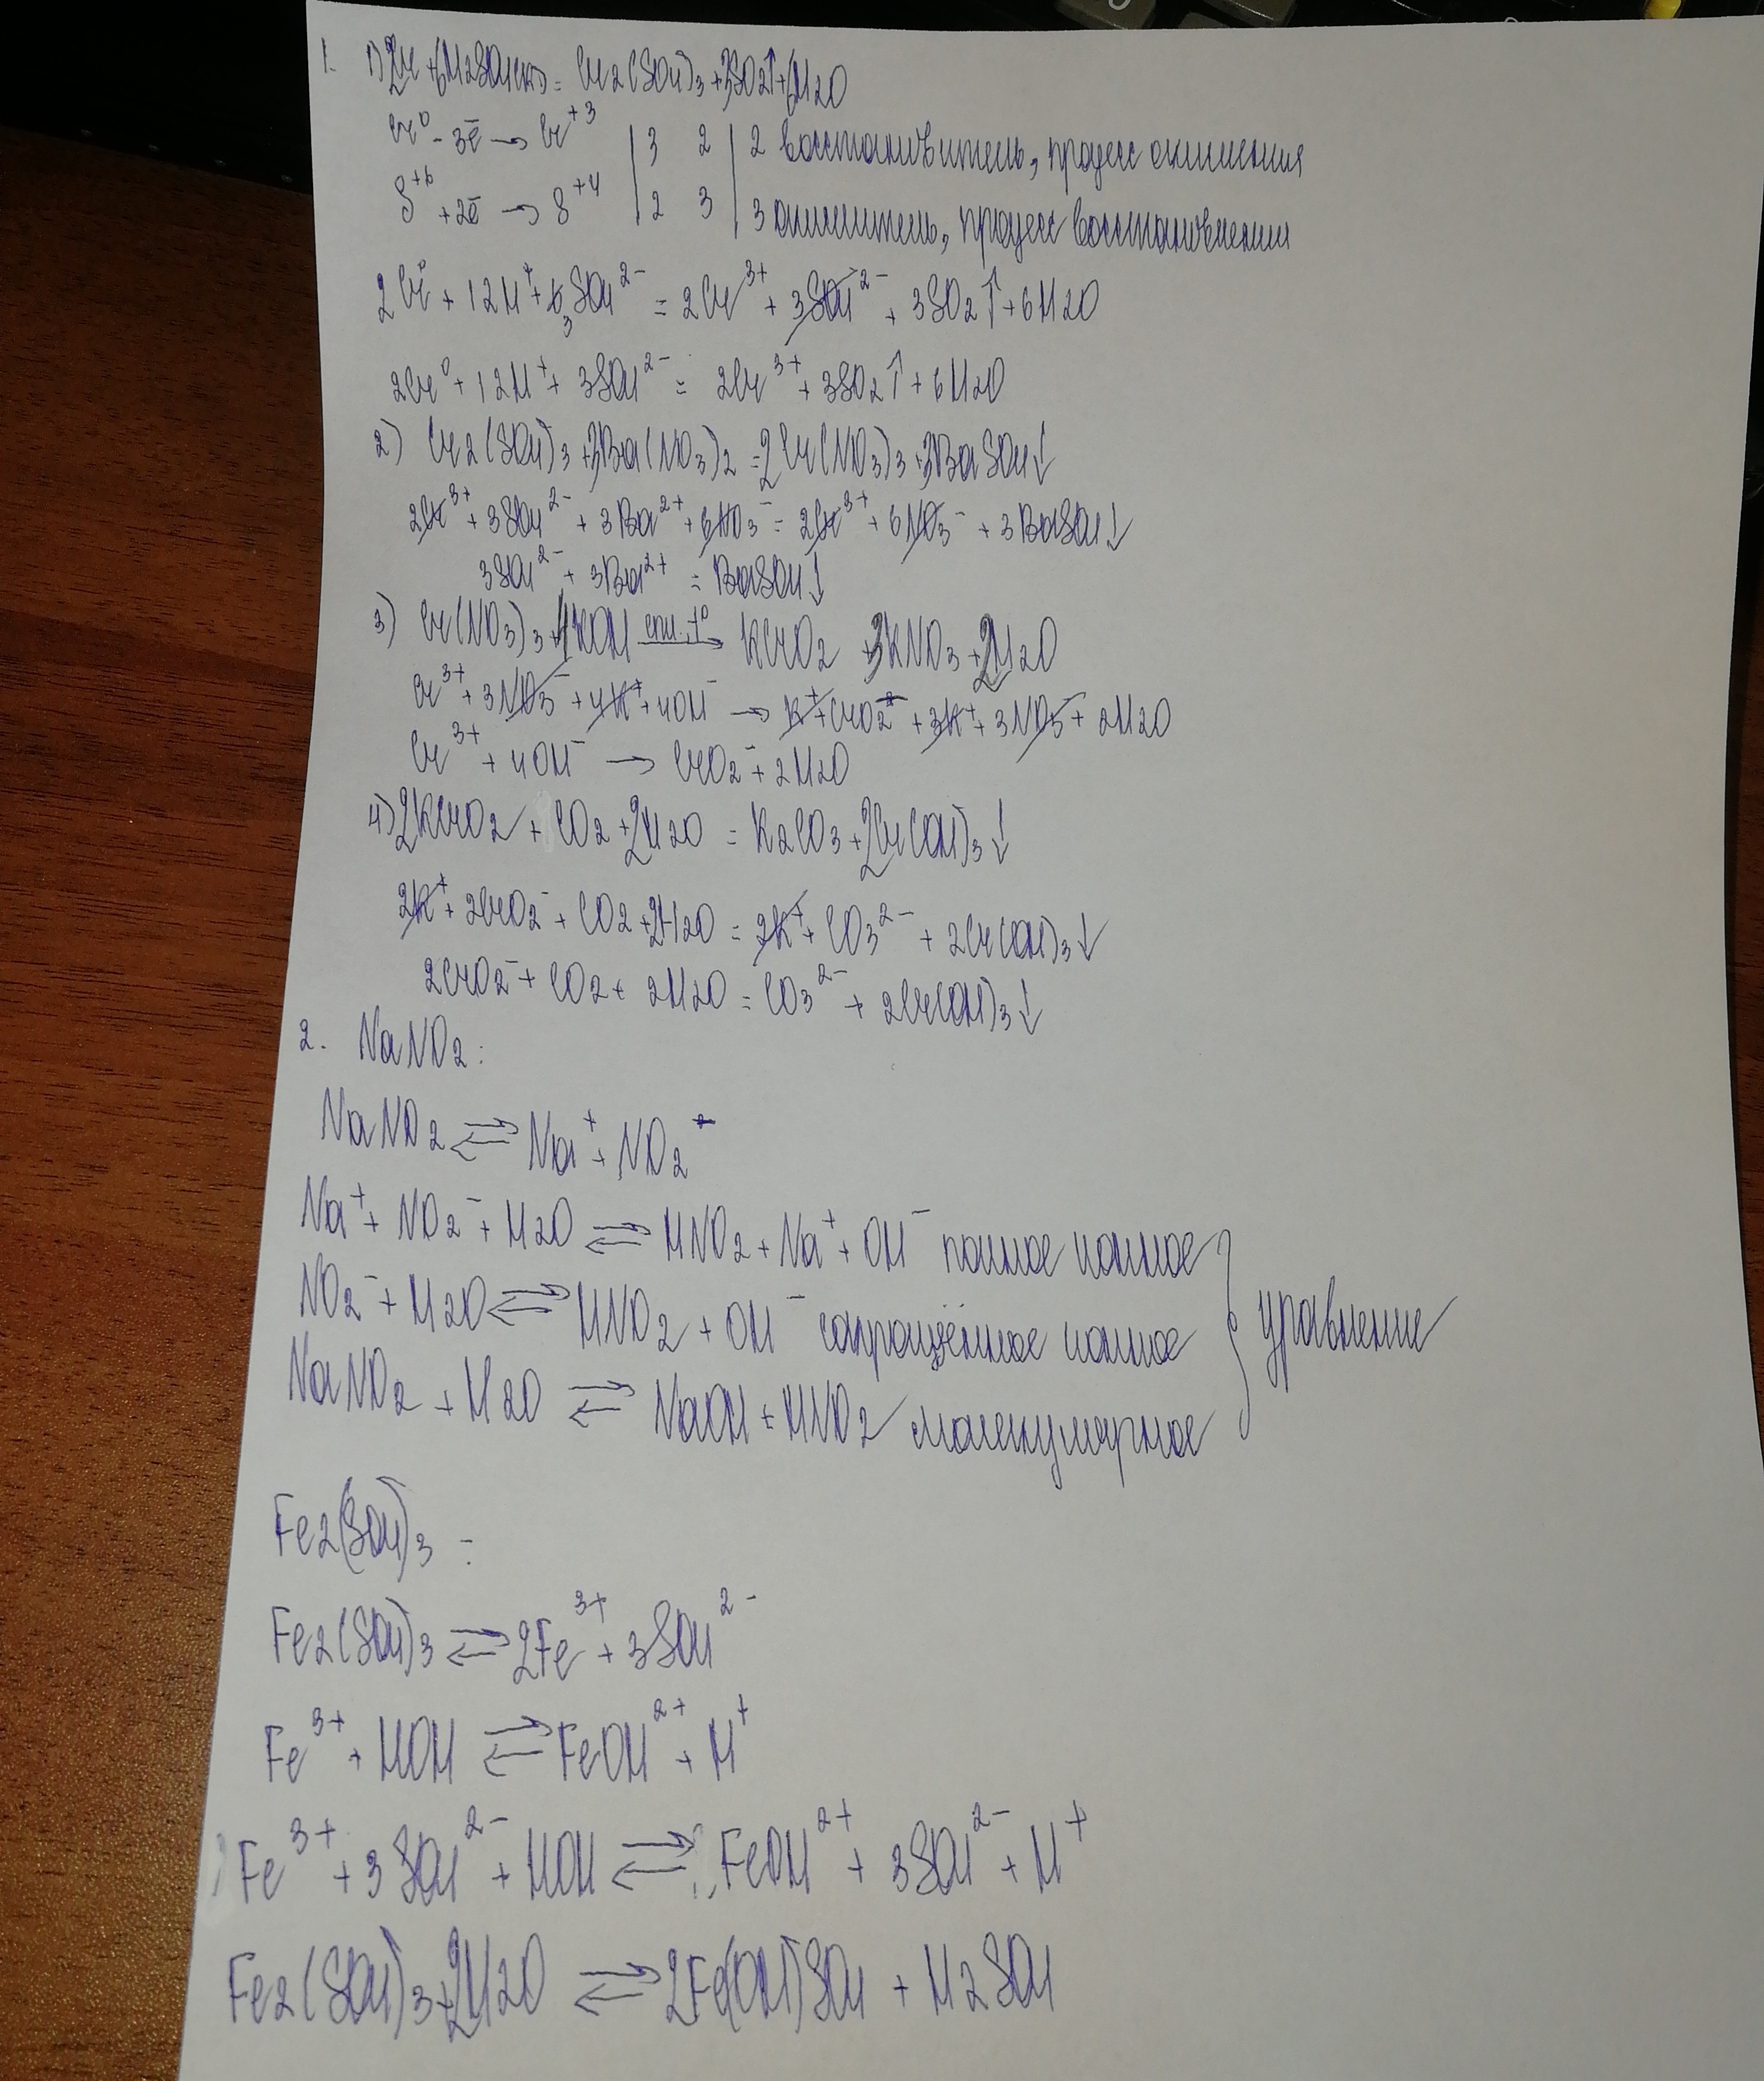 1. 1) 2Cr + 6H2SO4(к) = Cr2(SO4)3 + 3SO2↑ + 6H2O
Cr⁰ - 3ē → Cr⁺³ | 3 2 | 2 восстановитель, процесс окисления
S⁺⁶ + 2ē → S⁺⁴ | 2 3 | 3 окислитель, процесс восстановления
2Cr⁰ + 12H⁺ + 6 3SO4²⁻ = 2Cr³⁺ + 3SO4²⁻ + 3SO2↑ + 6H2O
2Cr⁰ + 12H⁺ + 3SO4²⁻ = 2Cr³⁺ + 3SO2↑ + 6H2O
2) Cr2(SO4)3 + 3Ba(NO3)2 = 2Cr(NO3)3 + 3BaSO4↓
2Cr³⁺ + 3SO4²⁻ + 3Ba²⁺ + 6NO3⁻ = 2Cr³⁺ + 6NO3⁻ + 3BaSO4↓
3SO4²⁻ + 3Ba²⁺ = BaSO4↓
3) Cr(NO3)3 + 4KOH спл., t⁰ → KCrO2 + 3KNO3 + 2H2O
Cr³⁺ + 3NO3⁻ + 4K⁺ + 4OH⁻ → K⁺ + CrO2⁻ + 3K⁺ + 3NO3⁻ + 2H2O
Cr³⁺ + 4OH⁻ → CrO2⁻ + 2H2O
4) 2KCrO2 + CO2 + 2H2O = K2CO3 + 2Cr(OH)3↓
2K⁺ + 2CrO2⁻ + CO2 + 2H2O = 2K⁺ + CO3²⁻ + 2Cr(OH)3↓
2CrO2⁻ + CO2 + 2H2O = CO3²⁻ + 2Cr(OH)3↓
2. NaNO2:
NaNO2 ⇄ Na⁺ + NO2⁻
Na⁺ + NO2⁻ + H2O ⇄ HNO2 + Na⁺ + OH⁻ полное ионное
NO2⁻ + H2O ⇄ HNO2 + OH⁻ сокращённое ионное
уравнение
NaNO2 + H2O ⇄ NaOH + HNO2 молекулярное
Fe2(SO4)3 :
Fe2(SO4)3 ⇄ 2Fe³⁺ + 3SO4²⁻
Fe³⁺ + HOH ⇄ FeOH²⁺ + H⁺
Fe³⁺ + 3SO4²⁻ + HOH ⇄ FeOH²⁺ + 3SO4²⁻ + H⁺
Fe2(SO4)3 + 2H2O ⇄ 2Fe(OH)SO4 + H2SO4